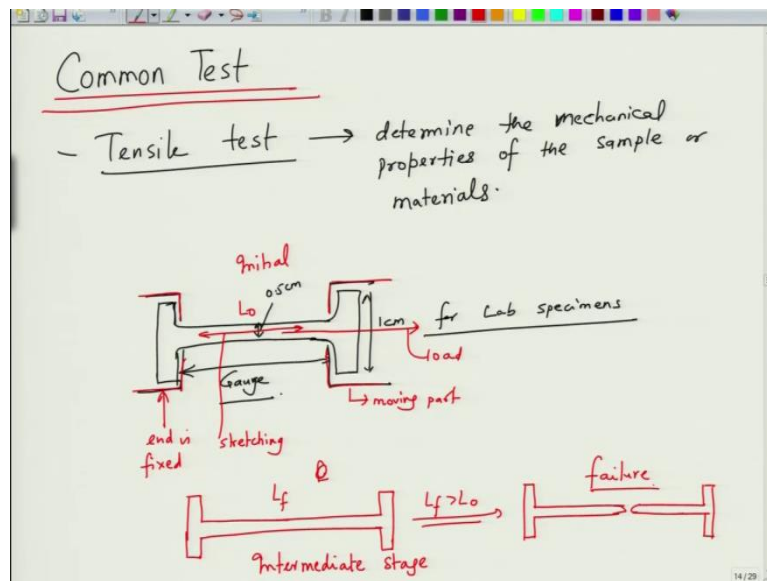 Common Test
- Tensile test → determine the mechanical
properties of the sample or
materials.
Initial
L₀
0.5cm
1cm
for Lab specimens
load
Gauge
moving part
end is
fixed
stretching
L_f
L_f > L₀
failure
Intermediate stage
14/29